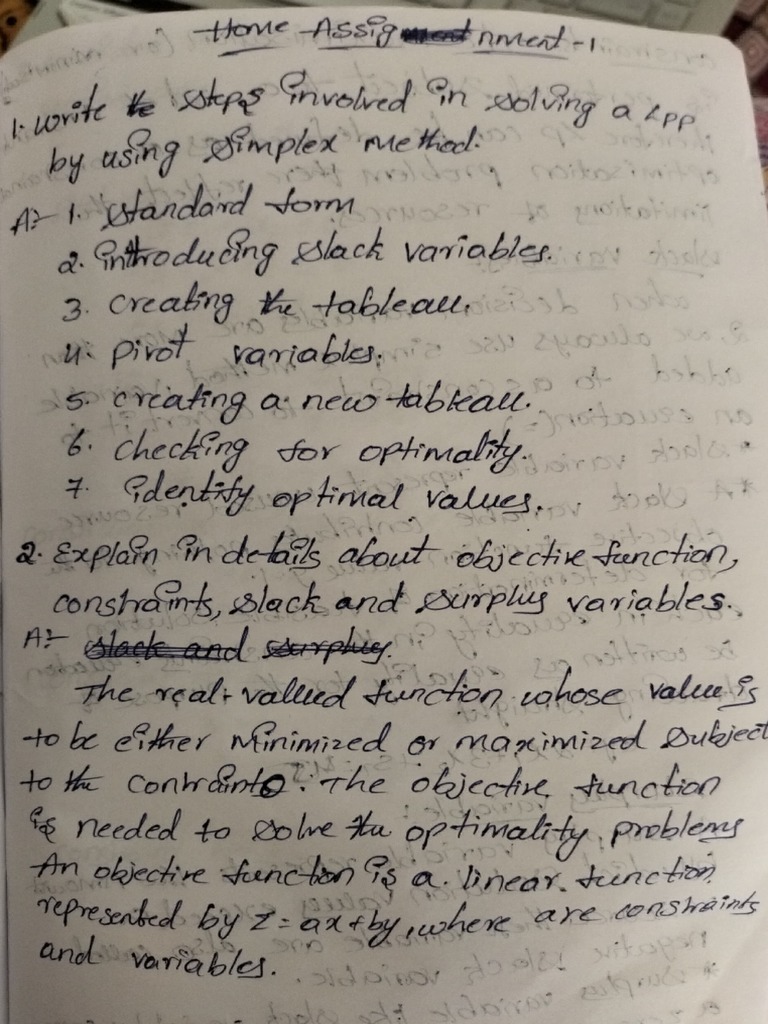 Home Assignment-1
1. Write the steps involved in solving a LPP
by using simplex method.
A:- 1. Standard form
2. Introducing slack variables.
3. Creating the tableau.
4. Pivot variables.
5. Creating a new tableau.
6. Checking for optimality.
7. Identify optimal values.
2. Explain in details about objective function,
constraints, slack and surplus variables.
A:- slack and surplus.
The real-valued function whose value is
to be either Minimized or maximized subject
to the contraints. The objective function
is needed to solve the optimality problems
An objective function is a linear function
represented by z = ax+by, where are constraints
and variables.